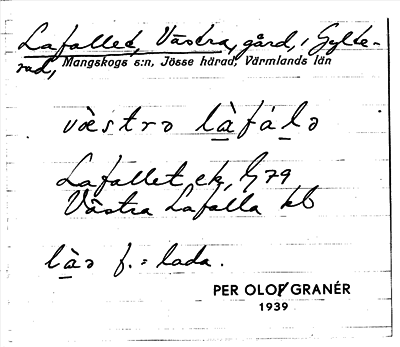 Lafallet, Västra, gård, i Gylte-
rud, Mangskogs s:n, Jösse härad, Värmlands län
væ̀strə là̠fá̠lə
Lafallet ek, G 79
Västra Lafalla kb
là̠ə f. = lada.
PER OLOF GRANÉR
1939